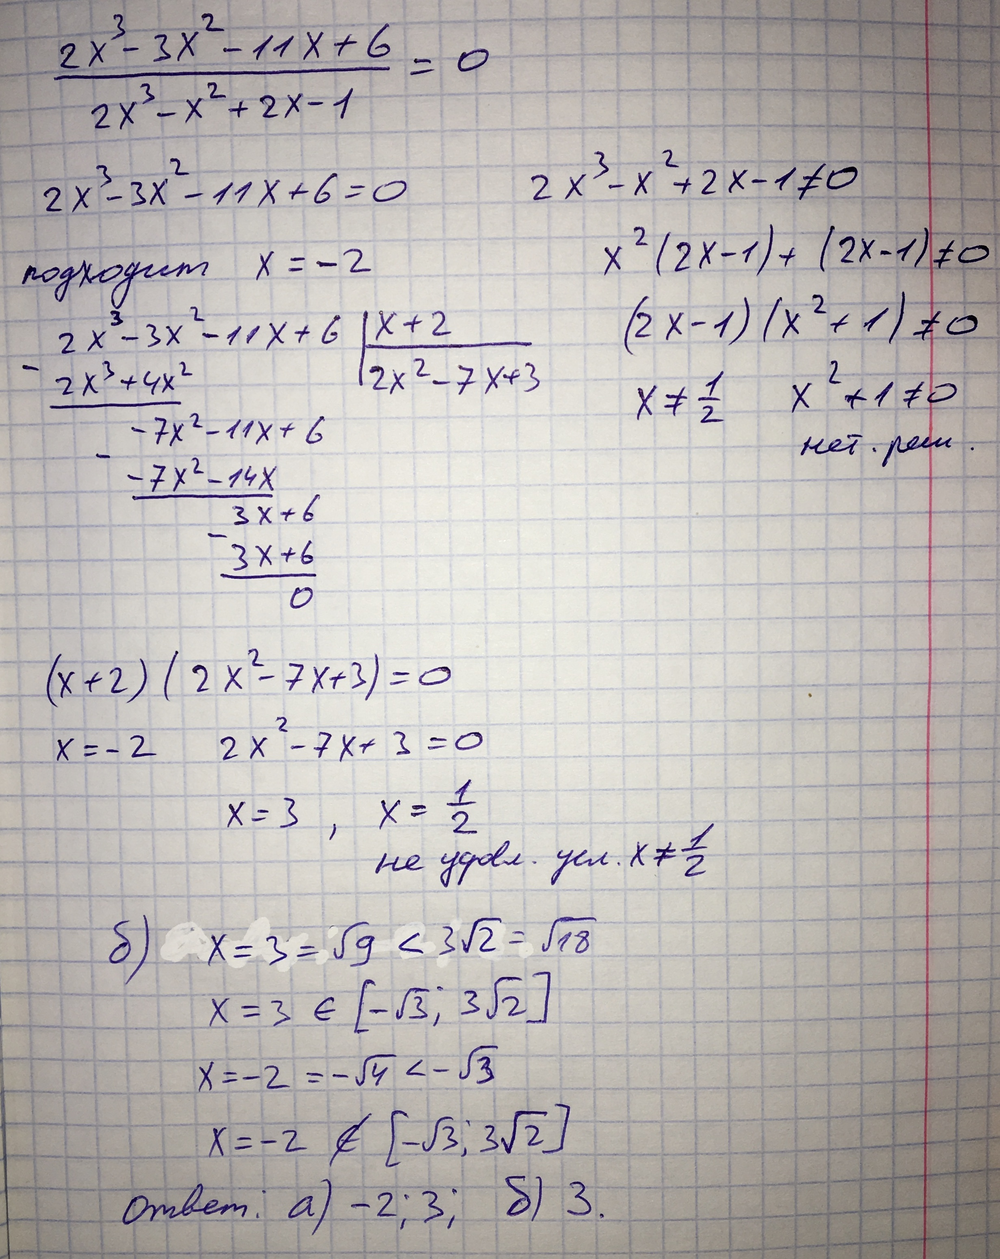 (2x³ - 3x² - 11x + 6)/(2x³ - x² + 2x - 1) = 0
2x³ - 3x² - 11x + 6 = 0
подходит x = -2
2x³ - 3x² - 11x + 6 | x + 2
- 2x³ + 4x² | 2x² - 7x + 3
-7x² - 11x + 6
- -7x² - 14x
3x + 6
- 3x + 6
0
2x³ - x² + 2x - 1 ≠ 0
x²(2x - 1) + (2x - 1) ≠ 0
(2x - 1)(x² + 1) ≠ 0
x ≠ 1/2 x² + 1 ≠ 0
нет. реш.
(x + 2)(2x² - 7x + 3) = 0
x = -2 2x² - 7x + 3 = 0
x = 3, x = 1/2
не удовл. усл. x ≠ 1/2
б) x = 3 = √9 < 3√2 = √18
x = 3 ∈ [-√3; 3√2]
x = -2 = -√4 < -√3
x = -2 ∉ [-√3; 3√2]
Ответ: а) -2; 3; б) 3.